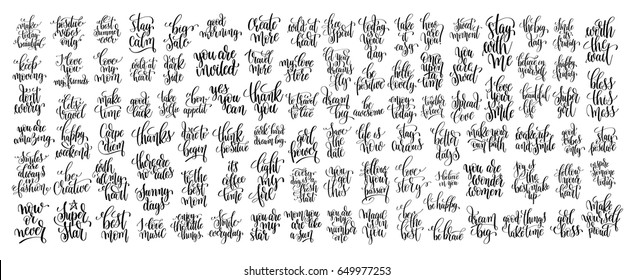 make today beautiful
positive vibes only
best summer ever
stay calm
big sale
good morning
create more
wild at heart
free spirit
today is the day
take it easy
how are you
stay with me
the big day
smile it's friday
worth the wait
keep moving
I love you
I love my mom
wild at heart
dark side
you are invited
travel more
my love store
let your dreams fly
be positive
hello lovely
enjoy today
you are sweet
believe in yourself
happy friday
bless this mess
don't worry
let's travel
make time
good luck
take selfie
bon appetit
yes you can
thank you
to travel is to live
dream big
be awesome
enjoy today
together forever
spread love
I love your smile
beautiful life
super girl
you are amazing
happy weekend
Carpe diem
thanks
dare to begin
think positive
girls' hard dream big
girl power
save the date
life is now
stay curious
better days
make your own path
wake up and smile
good vibes only
stay positive
smiles are always in fashion
be creative
with all my heart
there are no rules
to the best mom
it's coffee time
light my fire
every day is a fresh start
you got this
follow your passion
love story
I believe in you
you are wonder women
joy is the best make up
follow your heart
now or never
super star
best mom
sunny days
I love music
enjoy the little things
smile everyday
you are my star
mom you are like a queen
you are number one
magic in you
be the best
be happy
be brave
dream big
good things take time
girl boss
make yourself proud